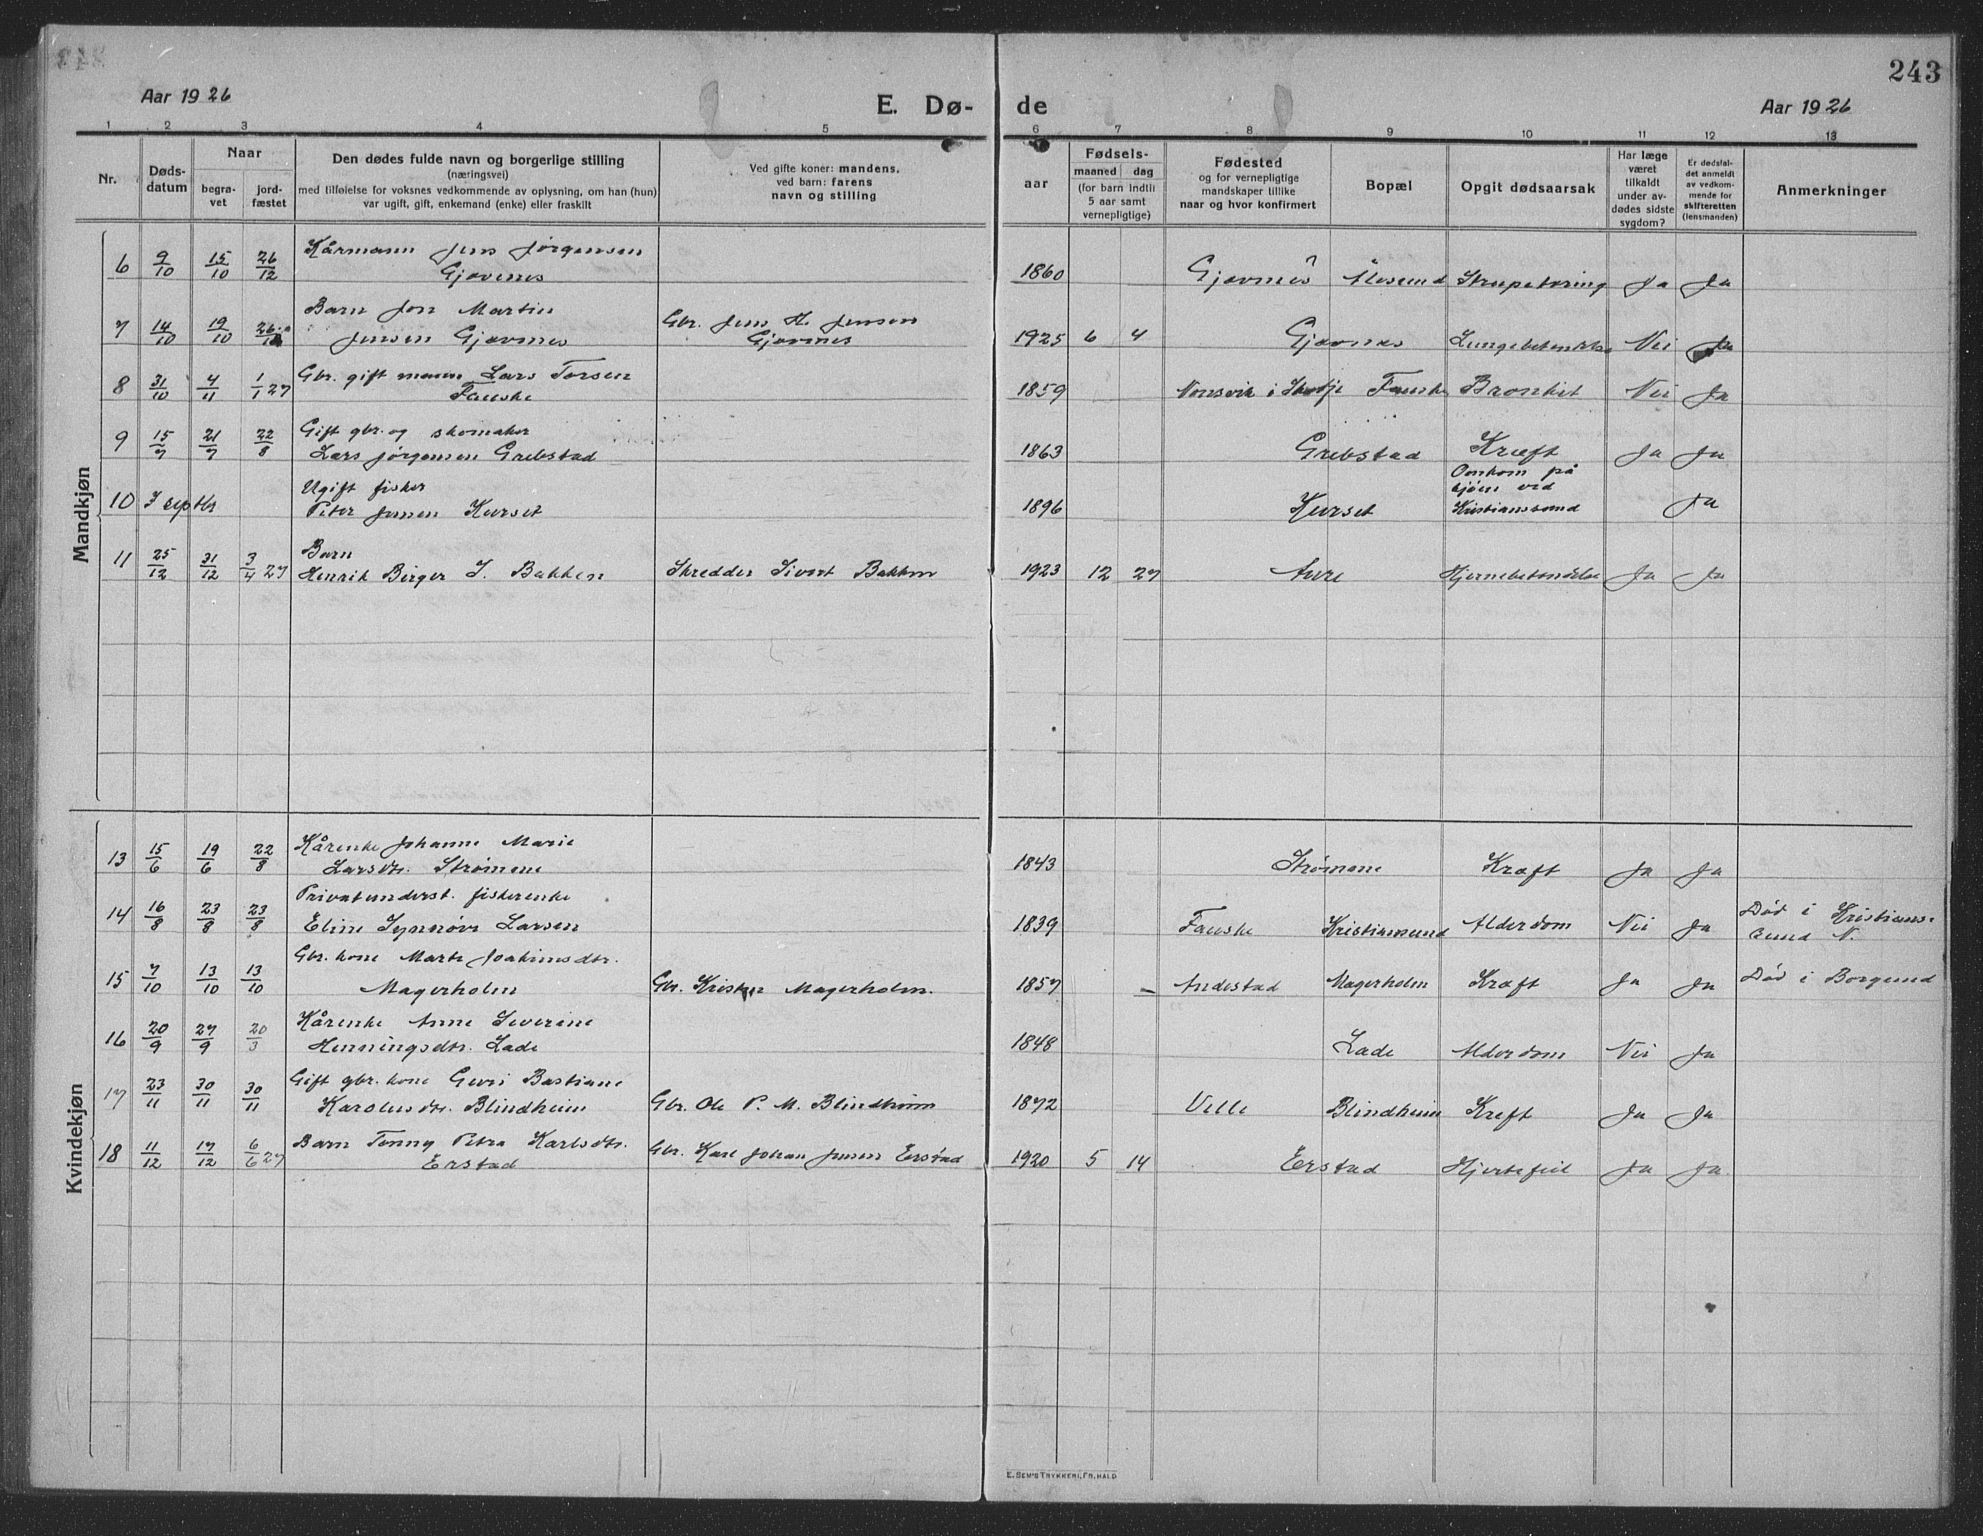 243
Aar 1926
E. Dø-
de
Aar 1926
1 2 3 4 5 6 7 8 9 10 11 12 13
Nr.
Døds-
datum
Naar
begra-
vet
jord-
fæstet
Den dødes fulde navn og borgerlige stilling
(næringsvei)
med tilføielse for voksnes vedkommende av oplysning, om han (hun)
var ugift, gift, enkemand (enke) eller fraskilt
Ved gifte koner: mandens,
ved barn: farens
navn og stilling
aar
Fødsels-
maaned dag
(for barn indtil
5 aar samt
vernepligtige)
Fødested
og for vernepligtige
mandskaper tillike
naar og hvor konfirmert
Bopæl
Opgit dødsaarsak
Har læge
været
tilkaldt
under av-
dødes sidste
sygdom?
Er dødsfal-
det anmeldt
av vedkom-
mende for
skifteretten
(lensmanden)
Anmerkninger
Mandkjøn
Kårmann Jens Jørgensen
6 9/10 15/10 26/12 Gjævenes 1860 Gjævnes Ålesund Strupetæring Ja Ja
Barn Jon Martin
7 14/10 19/10 Jensen Gjævnes Gbr. Jens H. Jensen Gjævnes 1925 6 4 Gjævnes Lungebetendelse Nei Ja
Gbr. gift mann Lars Torsen
8 31/10 4/11 1/1 27 Fauske 1859 Nonsvik i Skodje Fauske Bronkit Nei Ja
Gift gbr. og skomaker
9 15/7 21/7 22/8 Lars Jørgensen Grebstad 1863 Grebstad Kræft Ja Ja
Ugift fisker Omkom på
10 I septbr Peter Jensen Kurset 1896 Kurset sjøen ved Kristianssund Ja
Barn
11 25/12 31/12 3/4 27 Henrik Birger S. Bakken Skredder Sivert Bakken 1923 12 27 Aure Hjernebetendelse Ja Ja
Kvindekjøn
Kårenke Johanne Marie
13 15/6 19/6 22/8 Larsdtr. Strømene 1843 Strømene Kræft Ja Ja
Privatunderst. fiskerenke
14 16/8 23/8 23/8 Eline Synnøve Larsen 1839 Fauske Kristiansund Alderdom Nei Ja Død i Kristians-
sund N.
Gbr. kone Marte Joakimsdtr.
15 7/10 13/10 13/10 Magerholm Gbr. Kristen Magerholm. 1857 - Andestad Magerholm Kræft Ja Ja Død i Borgund
Kårenke Anne Severine
16 20/9 27/9 20/3 Henningsdtr. Lade 1848 Lade Alderdom Nei Ja
Gift gbr. kone Guri Bastiane
17 23/11 30/11 30/11 Karolusdtr. Blindheim Gbr. Ole P. M. Blindheim 1872 Velle Blindheim Kreft Ja Ja
Barn Tenny Petra Karlsdtr.
18 11/12 17/12 6/6 27 Erstad Gbr. Karl Johan Jensen Erstad 1920 5 14 Erstad Hjertefeil Ja Ja
E. SEM'S TRYKKERI, FR.HALD